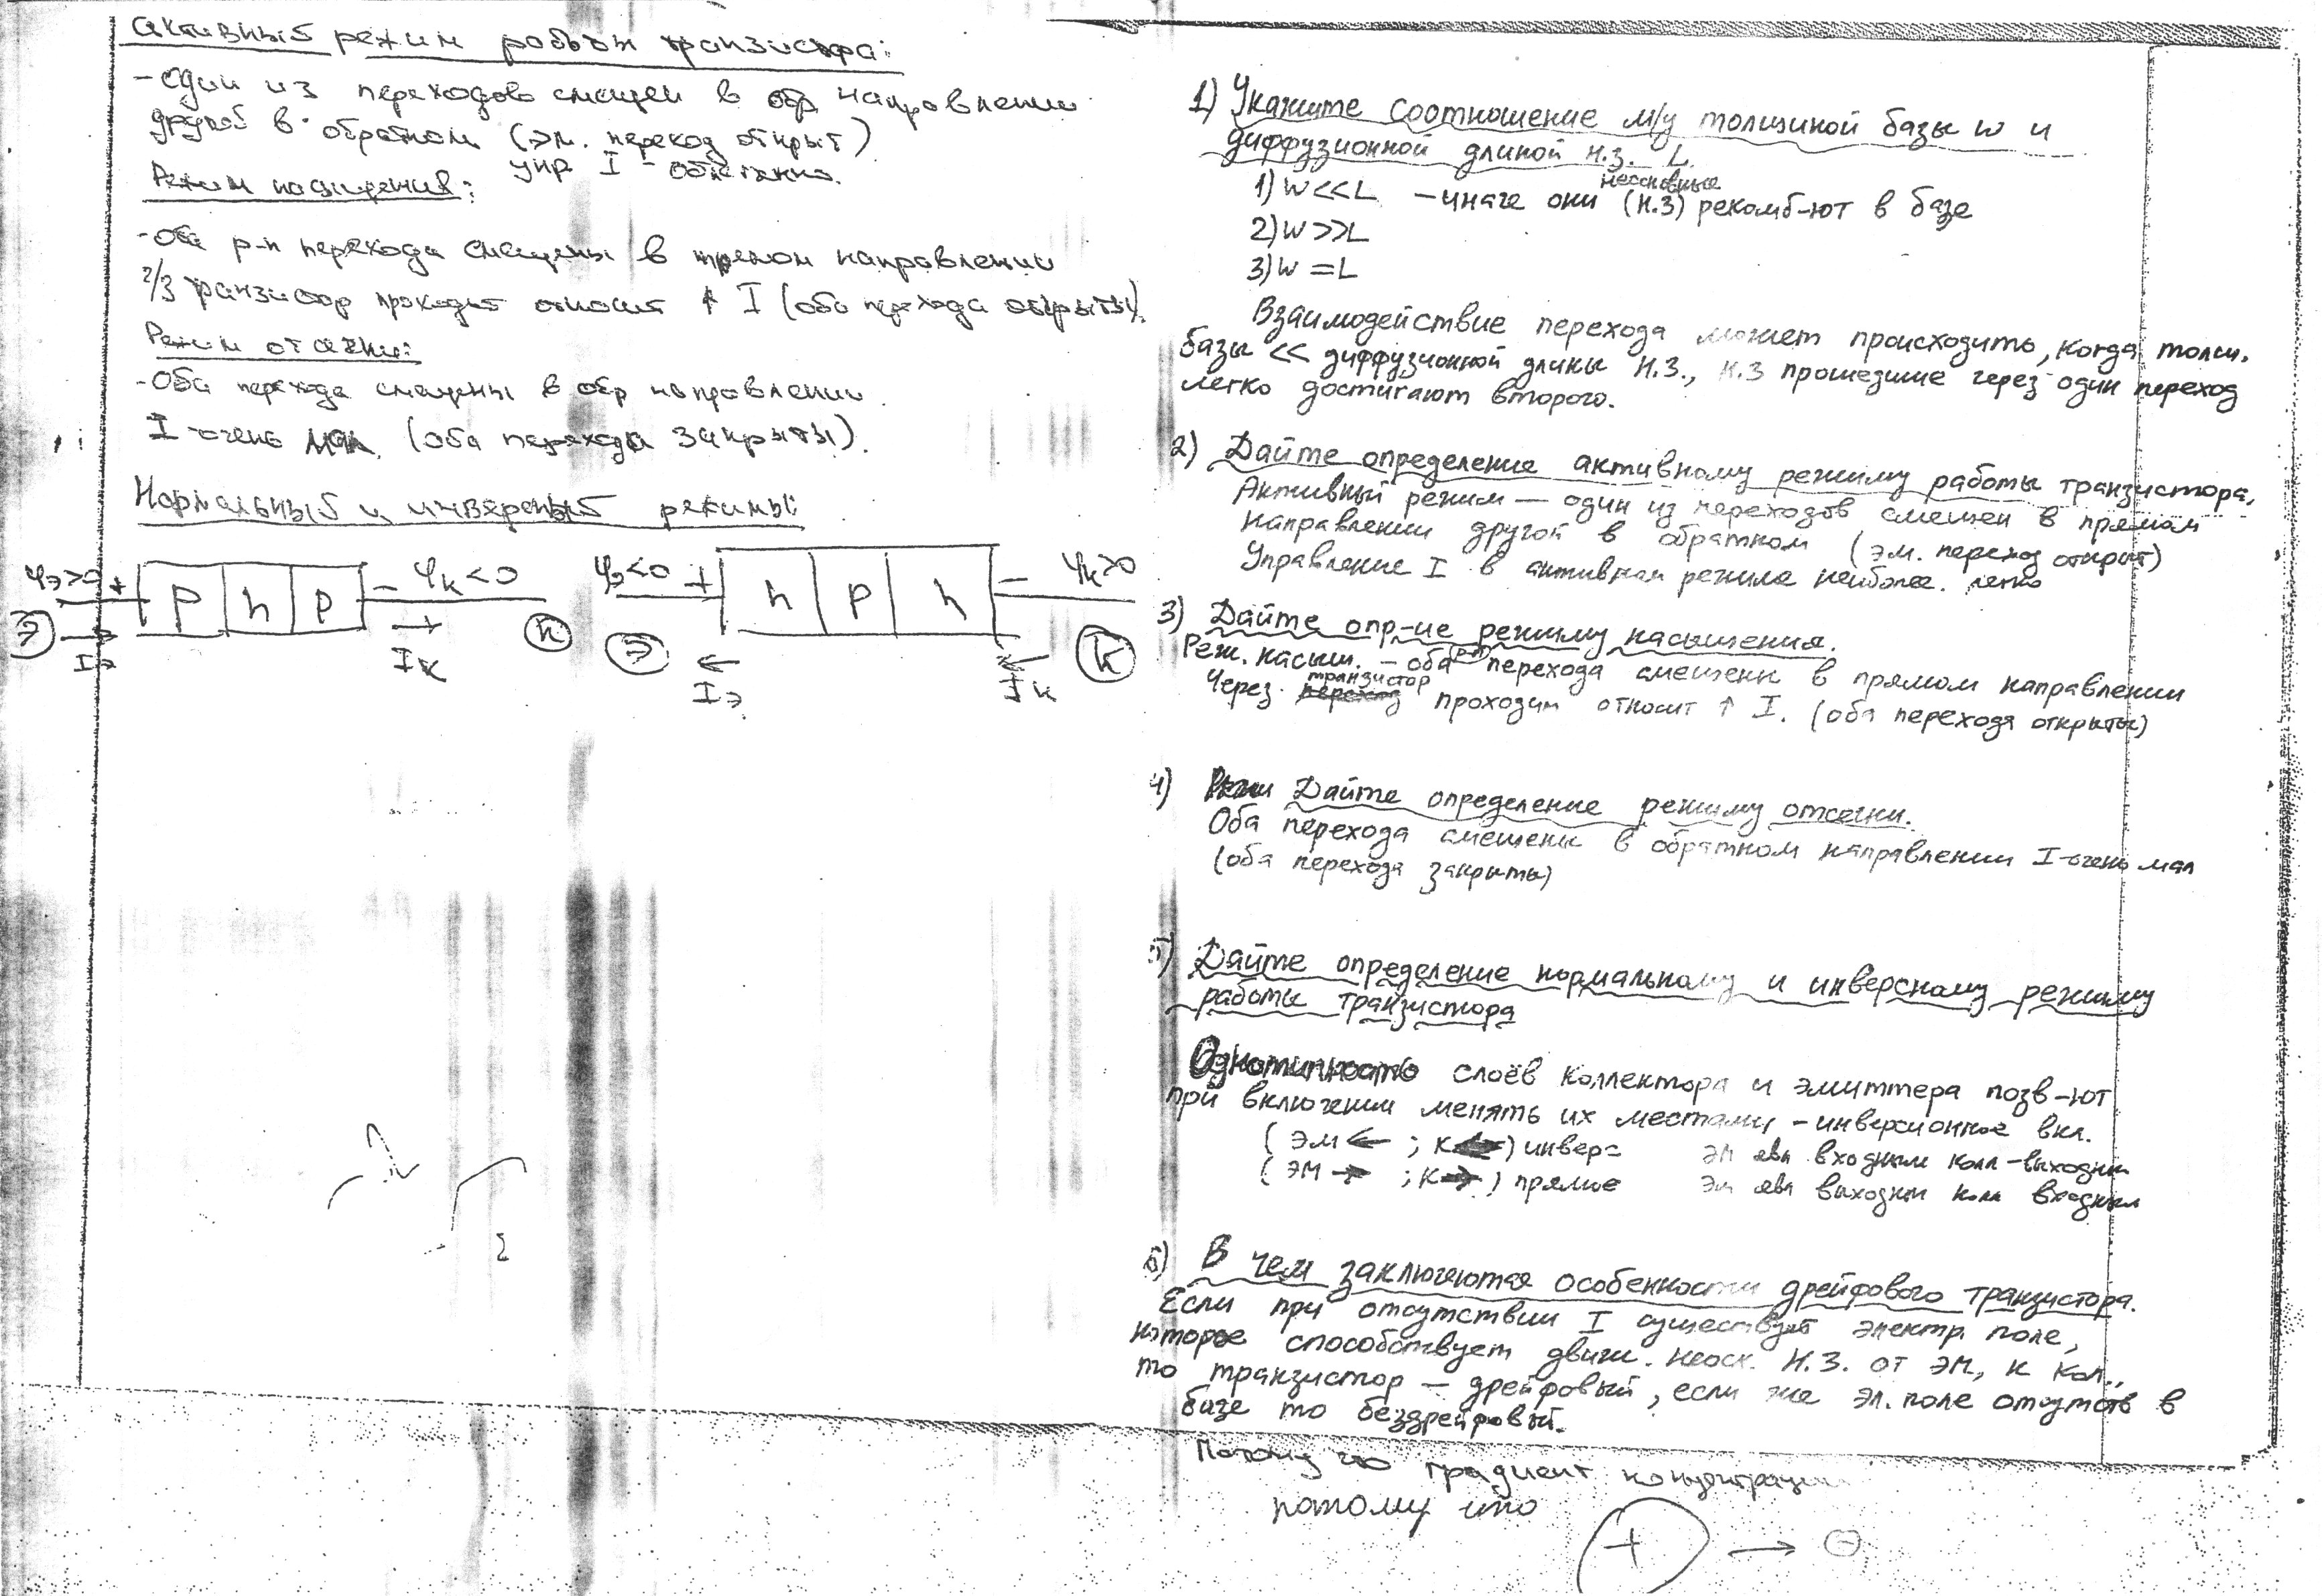 Активный режим работы транзистора:
- один из переходов смещен в обр направлении
другой в обратном (эм. переход открыт)
упр I -
Режим насыщения:
- оба p-n перехода смещены в прямом направлении
ч/з транзистор проходит относит ↑ I (оба перехода открыты).
Режим отсечки:
- Оба перехода смещены в обр направлении.
I - очень мал (оба перехода закрыты).
Нормальный и инверсный режимы:
φэ>0 + p n p - φк<0
Э Iэ Iк К
φэ<0 + n p n - φк>0
Э Iэ Iк К
1) Укажите соотношение м/у толщиной базы w и
диффузионной длиной н.з. L
неосновные
1) W<<L - иначе они (н.з) рекомб-ют в базе
2) W>>L
3) W=L
Взаимодействие перехода может происходить, когда толщ.
базы << диффузионной длины н.з., н.з прошедшие через один переход
легко достигают второго.
2) Дайте определение активному режиму работы транзистора.
Активный режим — один из переходов смещен в прямом
направлении другой в обратном (эм. переход открыт)
Управление I в активном режиме наиболее. легко
3) Дайте опр-ие режиму насыщения.
Реж. насыщ. - оба p-n перехода смещены в прямом направлении
транзистор
Через переход проходит относит ↑ I. (оба перехода открыты)
4) Дайте определение режиму отсечки.
Оба перехода смещены в обратном направлении I-очень мал
(оба перехода закрыты)
5) Дайте определение нормальному и инверсному режиму
работы транзистора
Однотипность слоёв коллектора и эмиттера позв-ют
при включении менять их местами - инверсионное вкл.
(эм ← ; к ←) инверс эм явл входным колл-выходным
(эм → ; к →) прямое эм явл выходным колл входным
6) В чем заключаются особенности дрейфового транзистора.
Если при отсутствии I существует электр. поле,
которое способствует движ. неосн. н.з. от эм, к кол.,
то транзистор — дрейфовый, если же эл. поле отсутств в
базе то бездрейфовый.
Потому что градиент концентрации
потому что
+ → -